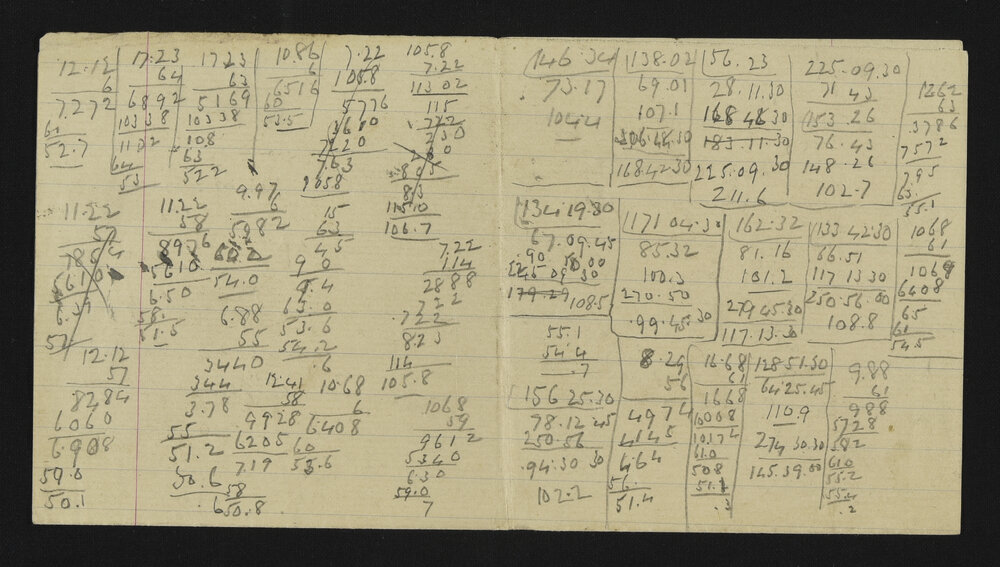 12.12
6
7272
61
52.7
17.23
64
6892
10338
1102
64
53
17.23
63
5169
10338
108
63
522
10.86
6
6516
60
53.5
7.22
105.8
5776
3610
7220
763
1058
105.8
7.22
113.02
115
722
230
805
83
115.0
106.7
11.22
57
7854
5610
6.39
57
11.22
58
8976
5610
6.50
58
51.5
9.97
6
5982
60.2
54.0
6.88
55
3440
344
3.78
55
51.2
50.6
15
63
45
90
9.4
63.0
53.6
54.2
.6
7.22
114
2888
722
722
823
114
105.8
12.12
57
8484
6060
6.908
59.0
50.1
1241
58
9928
6205
7.19
58
50.8
10.68
6
6408
60
53.6
1068
59
9612
5340
6.30
59.0
7
146.34
73.17
104.4
138.02
69.01
107.1
306.44.30
168.42.30
156.23
28.11.30
168.46.30
183.11.30
225.09.30
211.6
225.09.30
71 43
153.26
76.43
148.26
102.7
1262
63
3786
7572
795
63
55.1
134.19.30
67.09.45
.90 50.00
225 09 30
179.29
108.5
55.1
54.4
.7
171 04.30
85.32
100.3
270.50
.99.45.30
162.32
81.16
101.2
279 45.30
117.13.30
133 42.30
66.51
117 13 30
250.56.00
108.8
1068
61
1068
6408
65
61
54.5
156 25.30
78.12 45
250.56
.94.30 30
102.2
8.29
56
4974
4145
4.64
56.
51.4
16.68
61
1668
10008
10174
61.0
508
51.1
.3
128 51.30
64.25.45
110.9
274 30.30
145.39.00
9.88
61
988
5928
582
61.0
55.2
55.4
.2